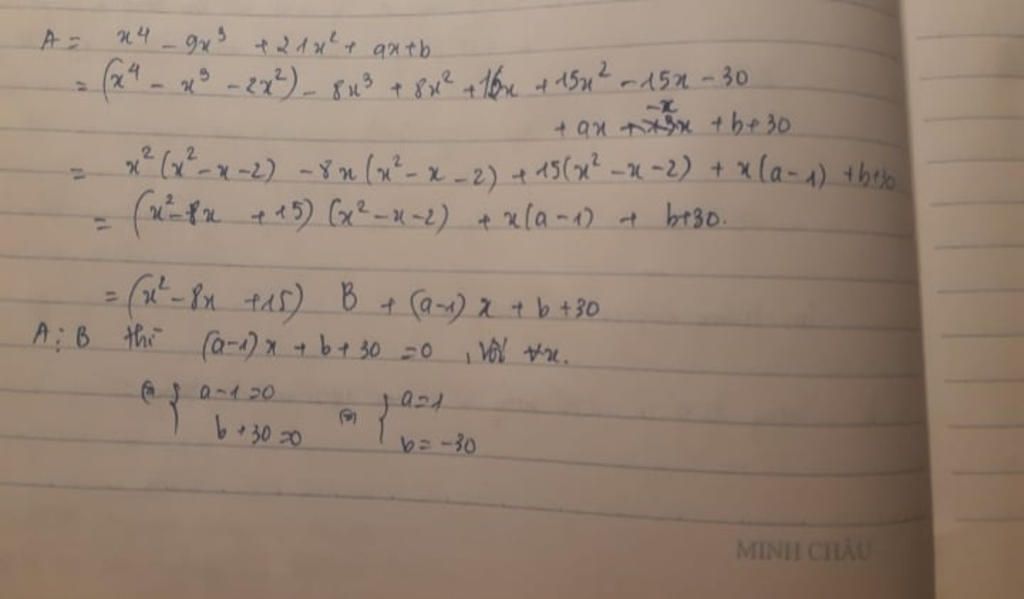 A = x⁴ - 9x³ + 21x² + ax+b
= (x⁴ - x³ - 2x²) - 8x³ + 8x² + 16x + 15x² - 15x - 30
-x
+ ax + b+30
= x²(x²-x-2) - 8x(x²-x-2) + 15(x²-x-2) + x(a-1) + b+30
= (x²-8x +15) (x²-x-2) + x(a-1) + b+30.
= (x²-8x +15) B + (a-1) x + b+30
A⋮B thì (a-1)x + b+30 =0 , với ∀x.
⇔ { a-1=0 ⇔ { a=1
b+30=0 b=-30
MINH CHÂU